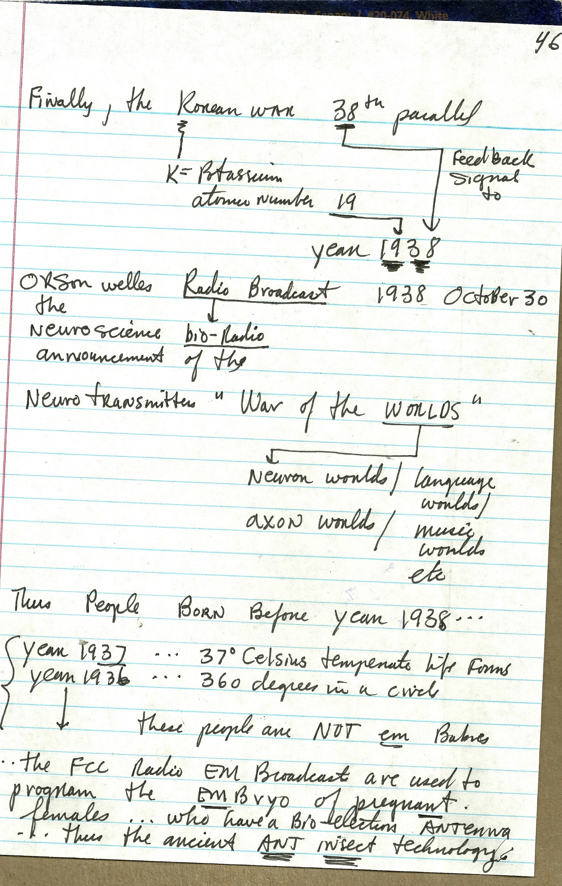 #20-074, White
46
Finally, the Korean war 38th parallel
K = Potassium
atomic number 19
Feedback
Signal
to
year 1938
Orson Welles Radio Broadcast 1938 October 30
the
Neuroscience bio-Radio
announcement of the
Neurotransmitters "War of the WORLDS"
Neuron worlds / language
worlds /
axon worlds / music
worlds
etc
Thus People BORN Before year 1938...
year 1937 ... 37° Celsius temperate life forms
year 1936 ... 360 degrees in a circle
these people are NOT em Babies
... the FCC Radio EM Broadcast are used to
program the EMBryo of pregnant.
females ... who have a Bio-election ANTENNA
... thus the ancient ANT insect technology